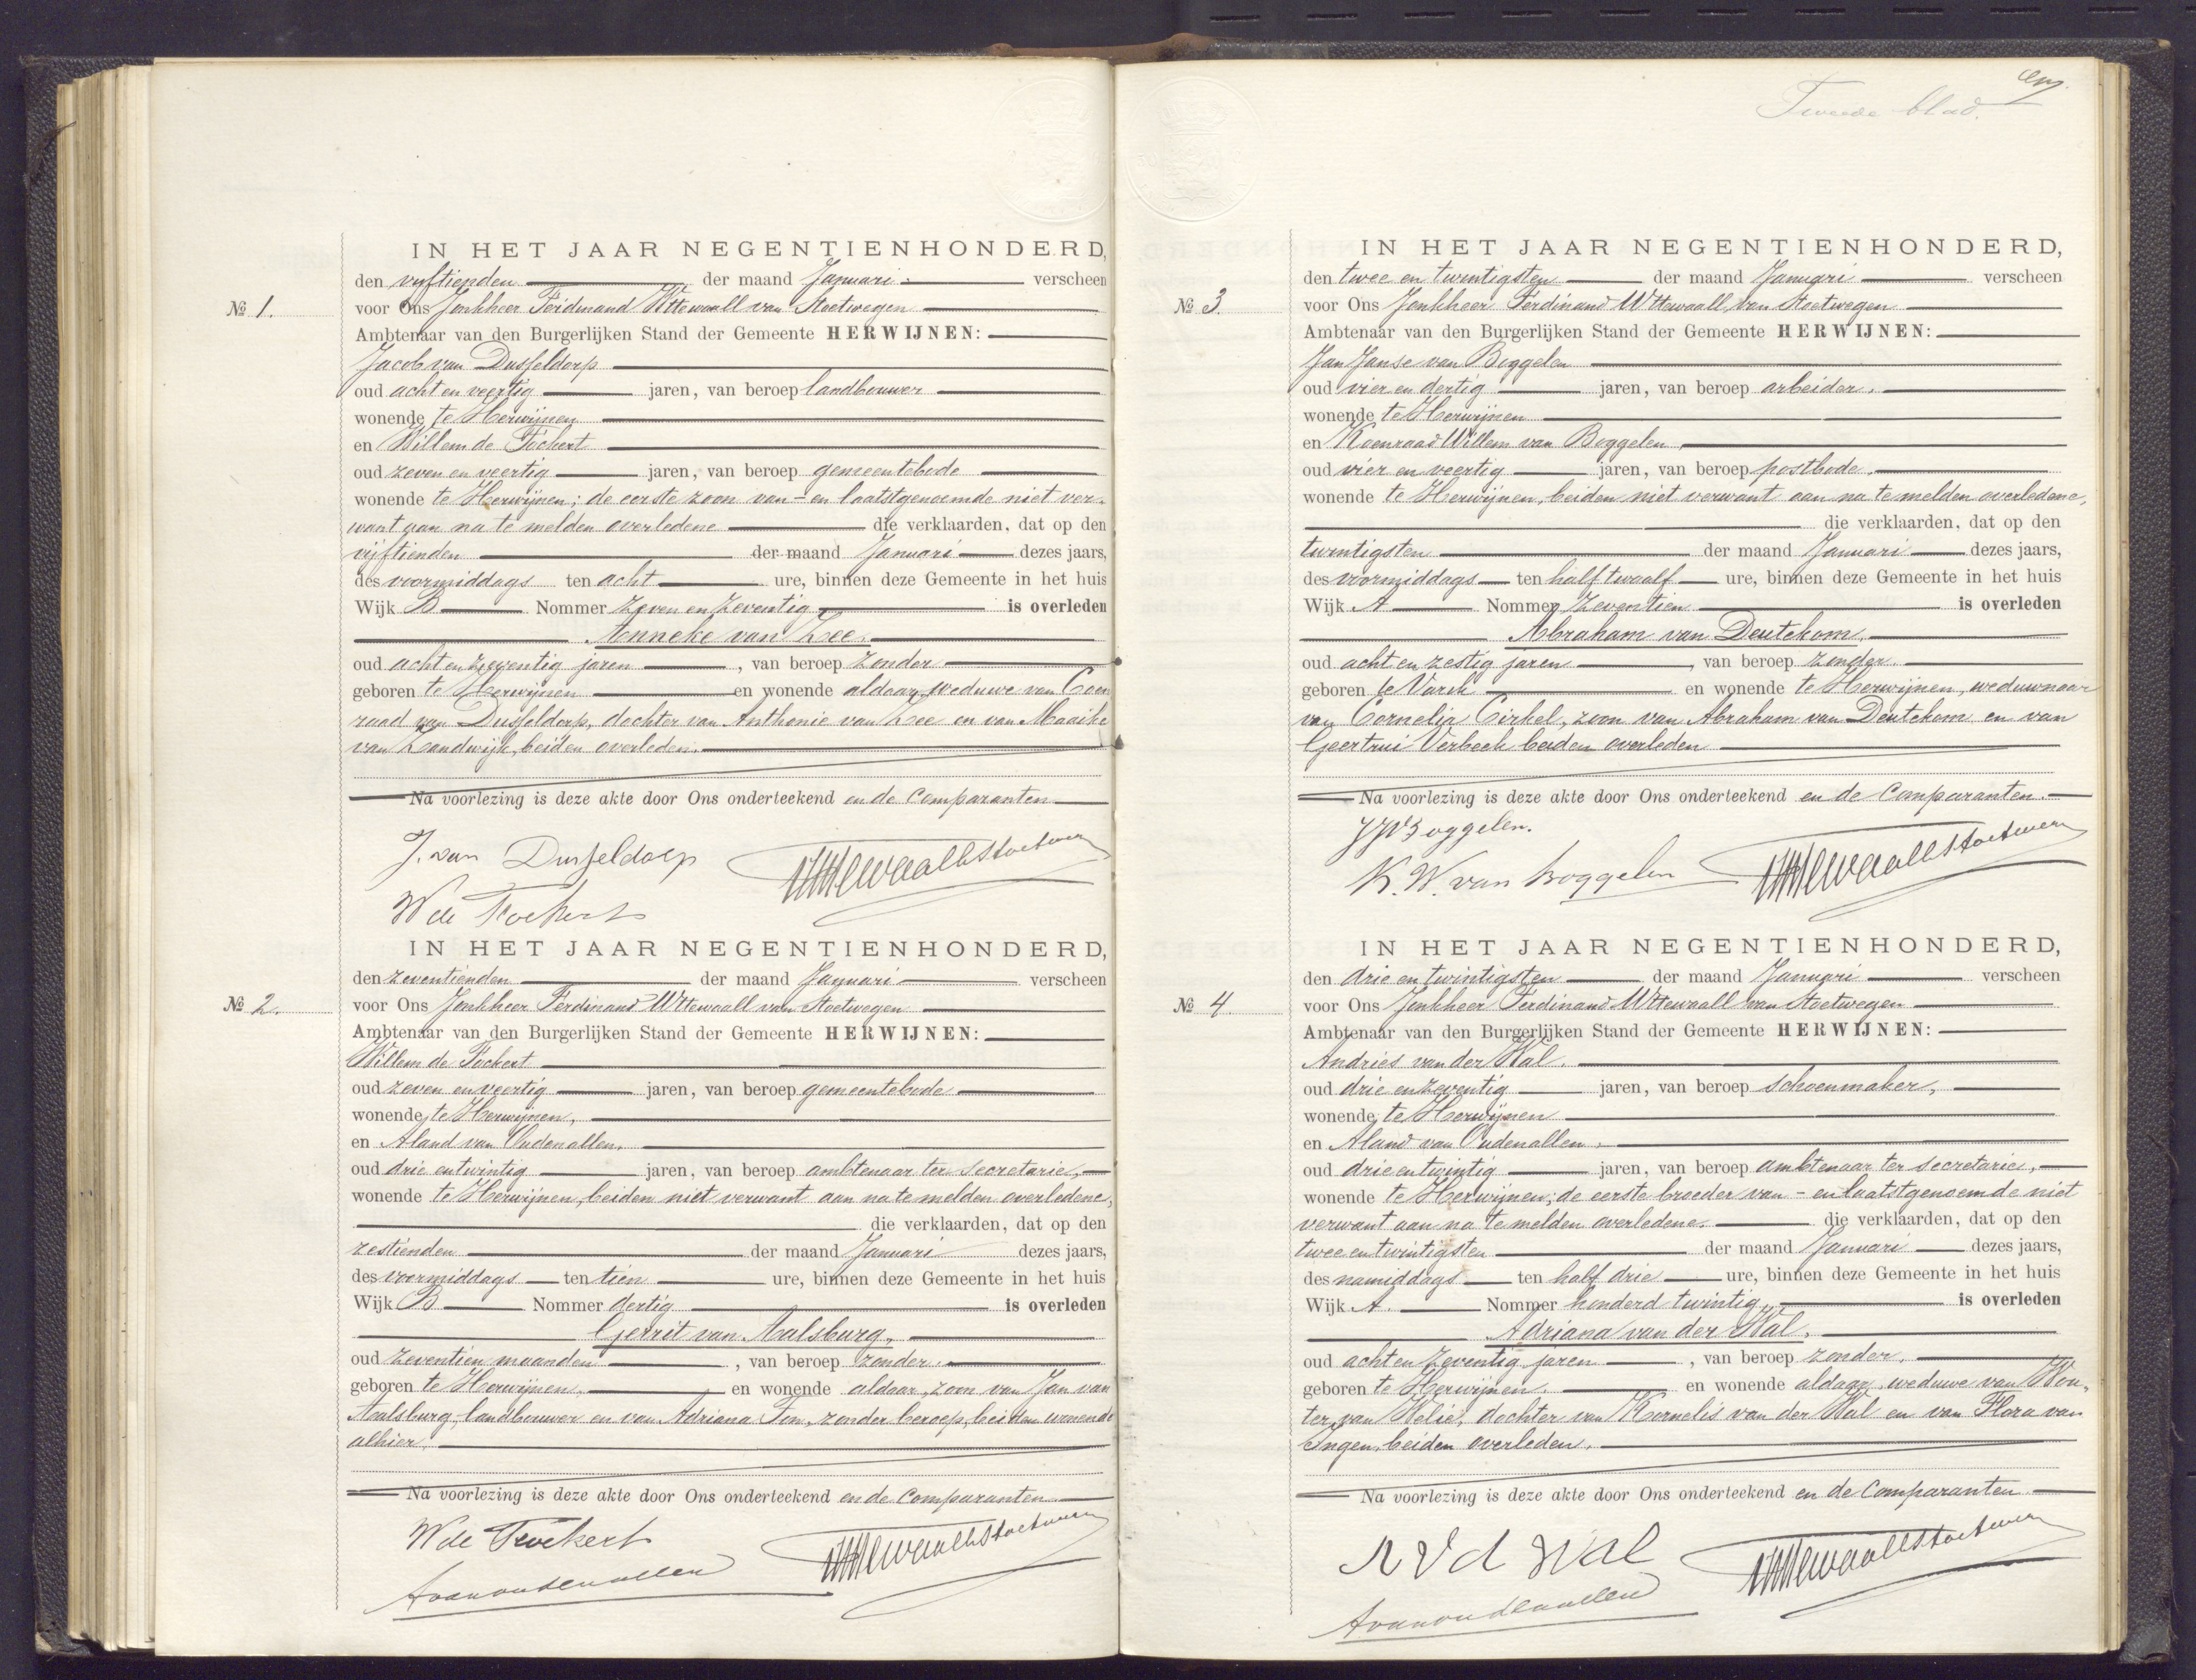 IN HET JAAR NEGENTIENHONDERD,
den vijftienden der maand Januari verscheen
№ 1. voor Ons Jonkheer Ferdinand Wttewaall van Stoetwegen
Ambtenaar van den Burgerlijken Stand der Gemeente HERWIJNEN:
Jacob van Dusseldorp
oud acht en veertig jaren, van beroep landbouwer
wonende te Herwijnen
en Willem de Fockert
oud zeven en veertig jaren, van beroep gemeentebode
wonende te Herwijnen; de eerste zoon van - en laatstgenoemde niet ver-
want aan na te melden overledene die verklaarden, dat op den
vijftienden der maand Januari dezes jaars,
des voormiddags ten acht ure, binnen deze Gemeente in het huis
Wijk B Nommer zeven en zeventig is overleden
Anneke van Zee.
oud acht en zeventig jaren, van beroep zonder
geboren te Herwijnen en wonende aldaar, weduwe van Coen
raad van Dusseldorp, dochter van Anthonie van Zee en van Maaike
van Zandwijk, beiden overleden.
Na voorlezing is deze akte door Ons onderteekend en de Comparanten
J. van Dusseldorp
W de Fockert
IN HET JAAR NEGENTIENHONDERD,
den zeventienden der maand Januari verscheen
№ 2. voor Ons Jonkheer Ferdinand Wttewaall van Stoetwegen
Ambtenaar van den Burgerlijken Stand der Gemeente HERWIJNEN:
Willem de Fockert
oud zeven en veertig jaren, van beroep gemeentebode
wonende te Herwijnen,
en Aland van Oudenallen,
oud drie en twintig jaren, van beroep ambtenaar ter secretarie,
wonende te Herwijnen, beiden niet verwant aan na te melden overledene,
die verklaarden, dat op den
zestienden der maand Januari dezes jaars,
des voormiddags ten tien ure, binnen deze Gemeente in het huis
Wijk B Nommer dertig is overleden
Gerrit van Aalsburg,
oud zeventien maanden, van beroep zonder.
geboren te Herwijnen, en wonende aldaar, zoon van Jan van
Aalsburg, landbouwer en van Adriana Ton, zonder beroep, beiden wonende
alhier.
Na voorlezing is deze akte door Ons onderteekend en de Comparanten
W de Fockert
Avanoudenallen
Tweede blad.
IN HET JAAR NEGENTIENHONDERD,
den twee en twintigsten der maand Januari verscheen
№ 3. voor Ons Jonkheer Ferdinand Wttewaall van Stoetwegen
Ambtenaar van den Burgerlijken Stand der Gemeente HERWIJNEN:
Jan Janse van Boggelen
oud vier en dertig jaren, van beroep arbeider,
wonende te Herwijnen
en Koenraad Willem van Boggelen,
oud vier en veertig jaren, van beroep postbode,
wonende te Herwijnen, beiden niet verwant aan na te melden overledene,
die verklaarden, dat op den
twintigsten der maand Januari dezes jaars,
des voormiddags ten half twaalf ure, binnen deze Gemeente in het huis
Wijk A Nommer zeventien is overleden
Abraham van Deutekom,
oud acht en zestig jaren, van beroep zonder
geboren te Varik en wonende te Herwijnen, weduwnaar
van Cornelia Cirkel, zoon van Abraham van Deutekom en van
Geertrui Verbeek beiden overleden
Na voorlezing is deze akte door Ons onderteekend en de Comparanten.
JJVBoggelen.
K. W. van Boggelen
IN HET JAAR NEGENTIENHONDERD,
den drie en twintigsten der maand Januari verscheen
№ 4. voor Ons Jonkheer Ferdinand Wttewaall van Stoetwegen
Ambtenaar van den Burgerlijken Stand der Gemeente HERWIJNEN:
Andries van der Wal,
oud drie en zeventig jaren, van beroep schoenmaker,
wonende te Herwijnen
en Aland van Oudenallen,
oud drie en twintig jaren, van beroep ambtenaar ter secretarie,
wonende te Herwijnen; de eerste broeder van - en laatstgenoemde niet
verwant aan na te melden overledene. die verklaarden, dat op den
twee en twintigsten der maand Januari dezes jaars,
des namiddags ten half drie ure, binnen deze Gemeente in het huis
Wijk A. Nommer honderd twintig, is overleden
Adriana van der Wal,
oud acht en zeventig jaren, van beroep zonder,
geboren te Herwijnen, en wonende aldaar, weduwe van Wou-
ter van Welie, dochter van Kornelis van der Wal en van Flora van
Ingen, beiden overleden.
Na voorlezing is deze akte door Ons onderteekend en de Comparanten
A V d Wal
Avanoudenallen